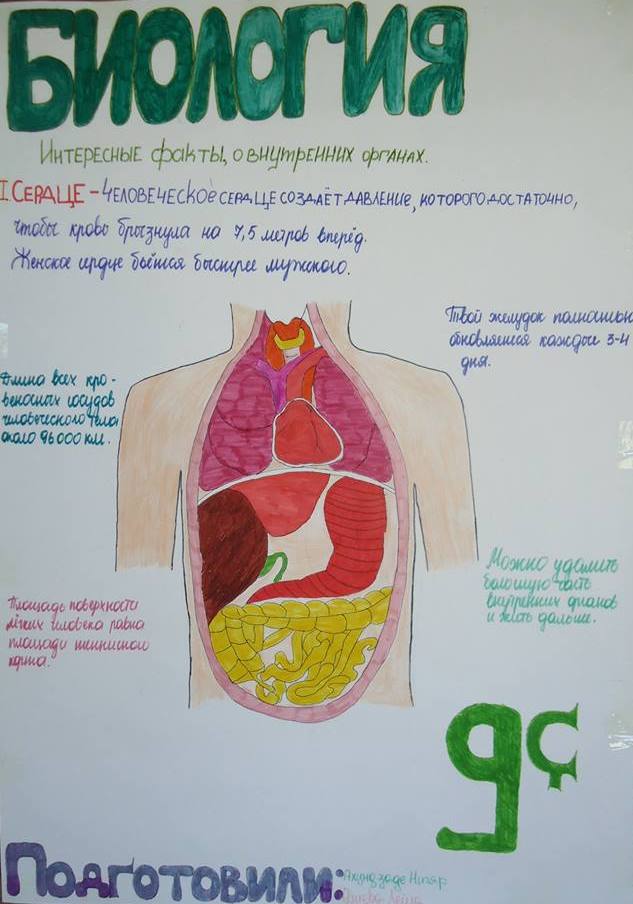 БИОЛОГИЯ
Интересные факты, о внутренних органах.
I. Сердце – Человеческое сердце создаёт давление, которого достаточно,
чтобы кровь брызнула на 7,5 метров вперёд.
Женское сердце бьётся быстрее мужского.
Твой желудок полностью
обновляется каждые 3-4
дня.
Длина всех кро-
веносных сосудов
человеческого тела
около 96 000 км.
Можно удалить
большую часть
внутренних органов
и жить дальше.
Площадь поверхности
лёгких человека равна
площади теннисного
корта.
9ç
Подготовили: Ахундзаде Нигяр